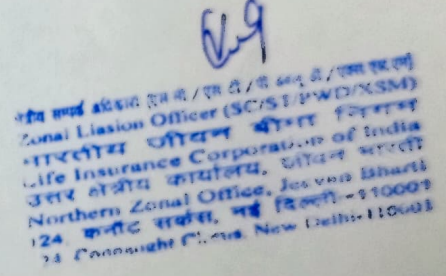 क्षेत्रीय सम्पर्क अधिकारी
Zonal Liasion Officer (SC/ST/PWD/XSM)
भारतीय जीवन बीमा निगम
Life Insurance Corporation of India
उत्तर क्षेत्रीय कार्यालय, जीवन भारती
Northern Zonal Office, Jeevan Bharti
124, कनॉट सर्कस, नई दिल्ली-110001
124 Connaught Circus, New Delhi-110001